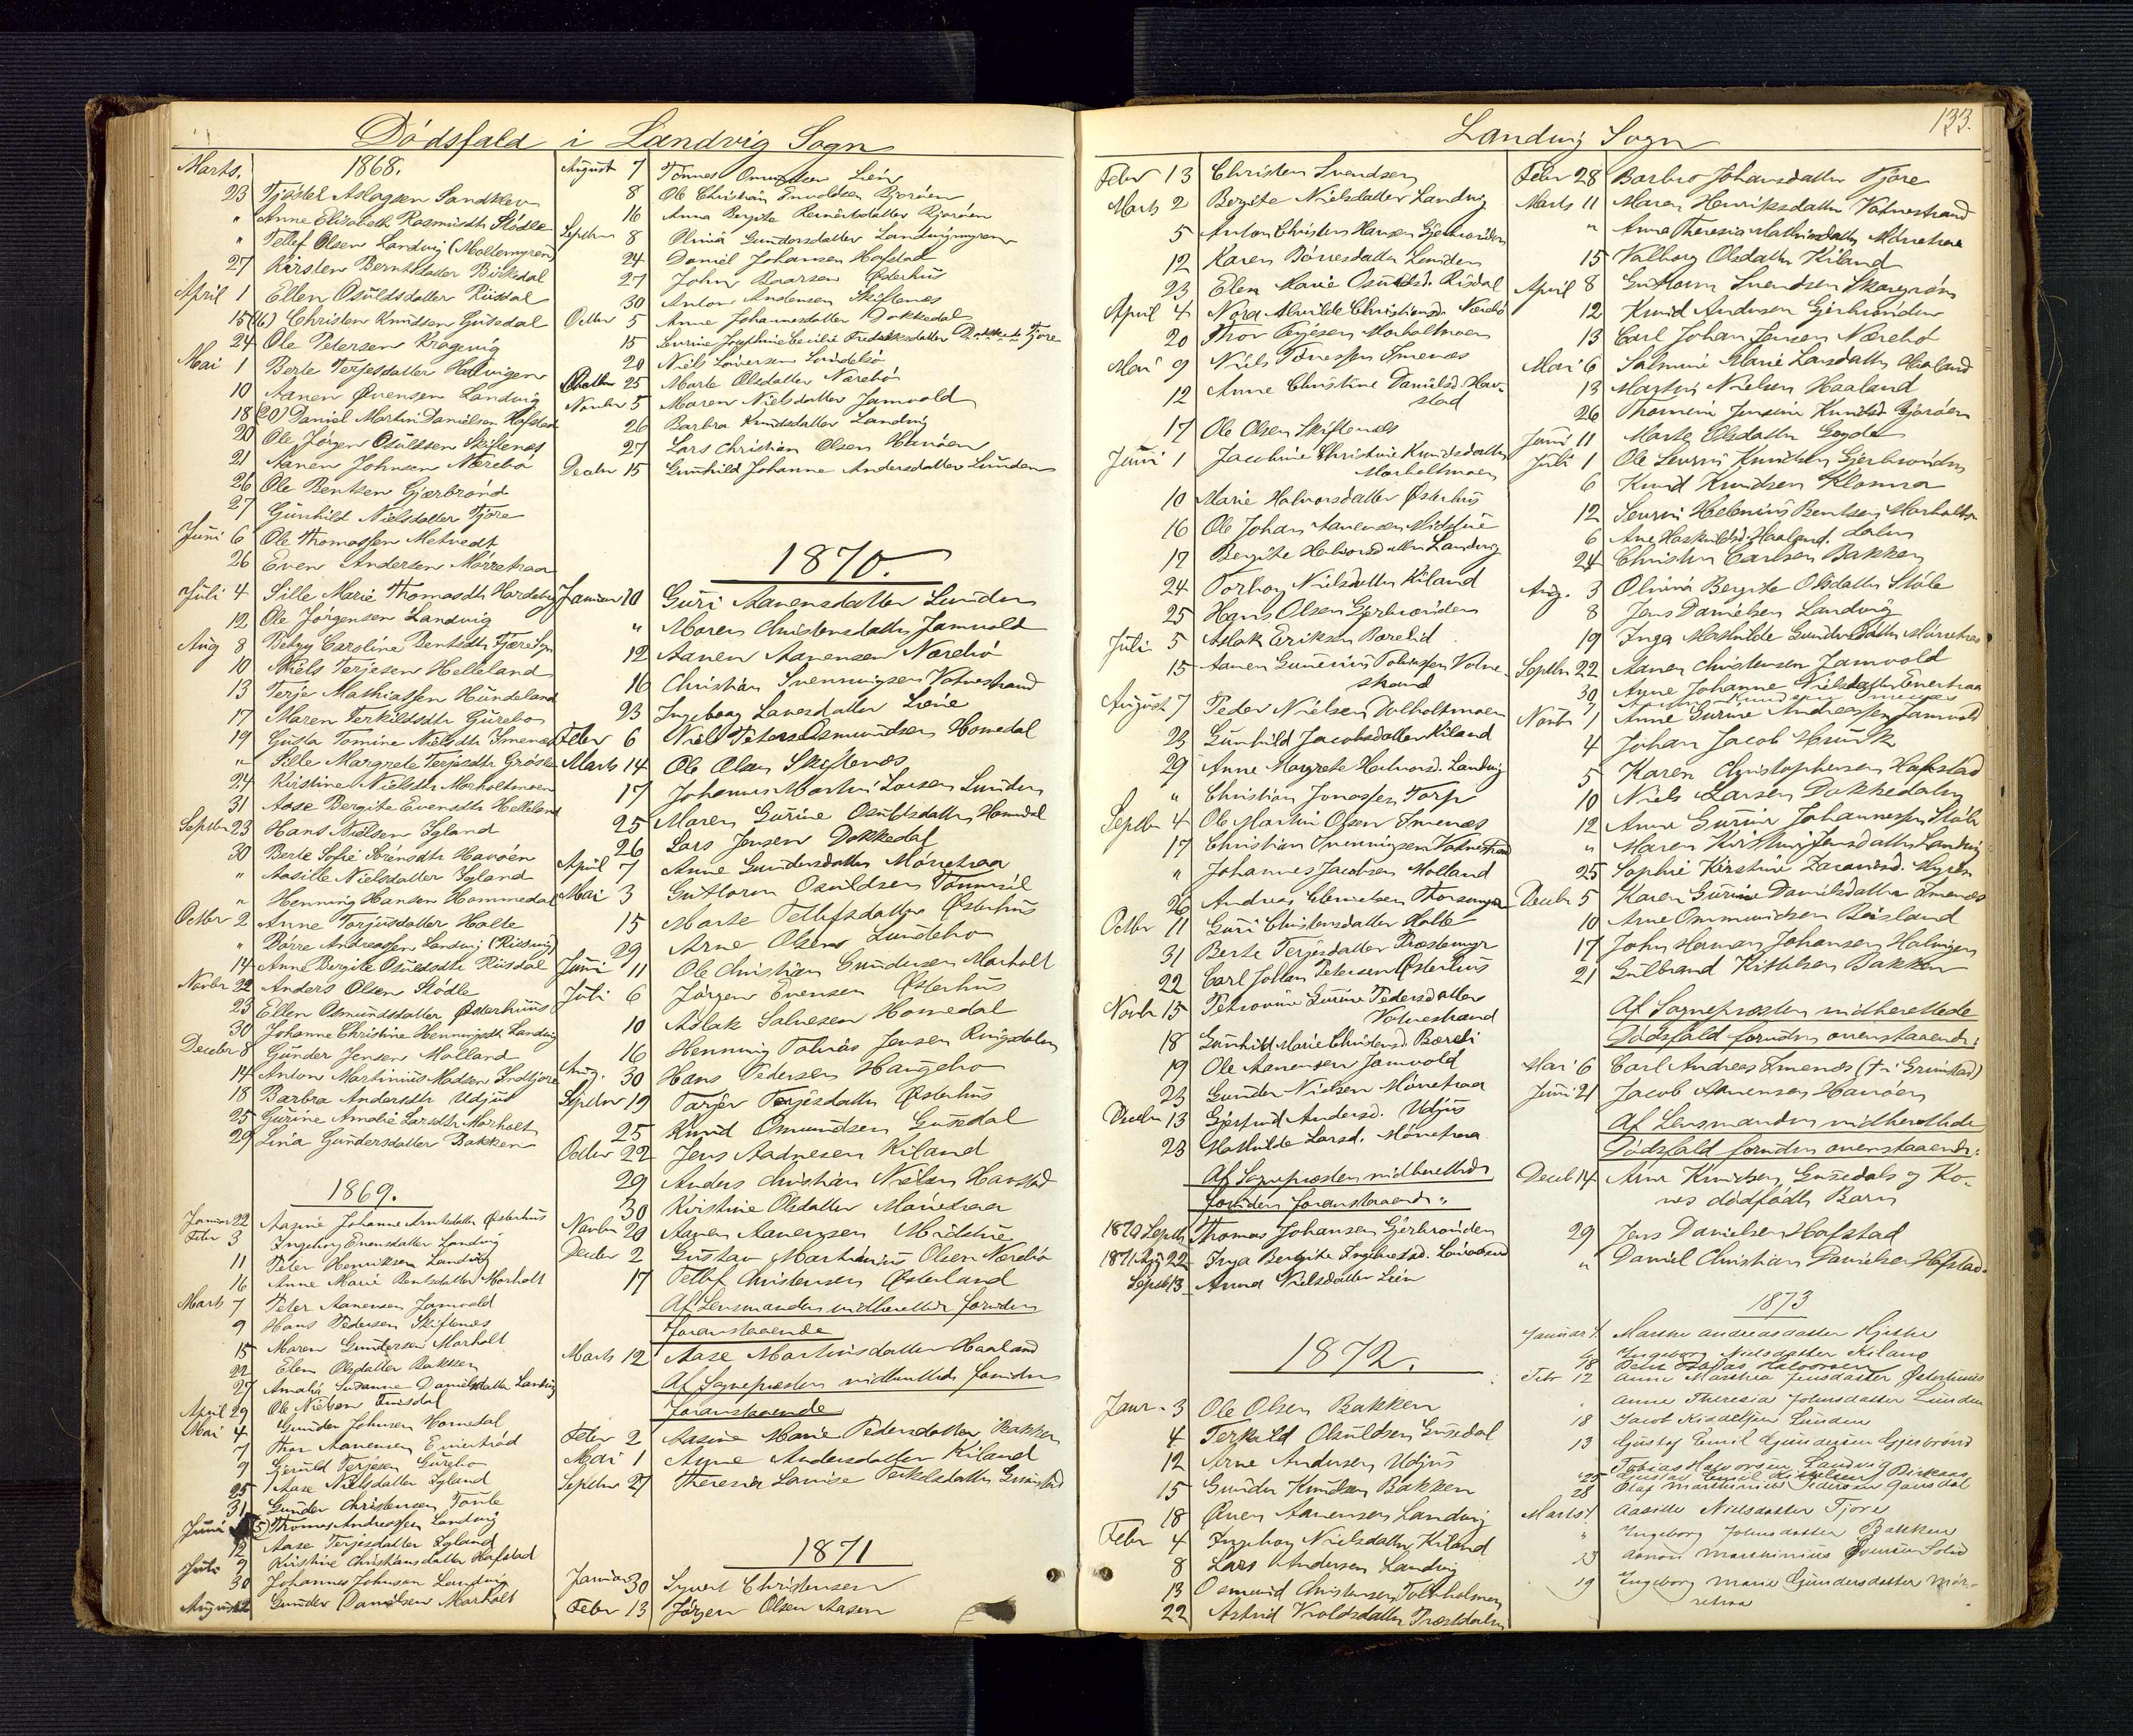 Dödsfald i Landvig Sogn
Marts. 1868.
23 Tjöstel Aslagsen Sandklev
" Anne Elisabeth Rasmusdtr Stödle
" Tellef Olsen Landvig (Moltemyren)
27 Kirsten Berntsdatter Birkedal
April 1 Ellen Osuldsdatter Riisdal
15 (16) Christen Knudsen Gusedal
24 Ole Petersen Kragevig
Mai 1 Berte Terjesdatter Halvigen
10 Aanen Øvensen Landvig
18 (20) Daniel Martin Danielsen Hafstad
20 Ole Jörgen Osuldsen Skiftenes
21 Aanen Johnsen Nærebö
26 Ole Bentsen Gjærbrönd
27 Gunhild Nielsdatter Tjore
Juni 6 Ole Thomassen Metvedt
26 Even Andersen Mörretraa
Juli 4 Sille Marie Thomasdtr
12 Ole Jörgensen Landvig
Aug 8 Betsy Caroline Bentsdtr
10 Niels Terjesen Helleland
13 Terje Mathiassen Hundeland
17 Maren Terkildsdtr Gurebo
19 Gusta Tomine Nielsdtr Imenes
" Sille Margrete Terjesdtr
24 Kirstine Nielsdtr Morholtmoen
31 Aase Bergite Evensdtr Helleland
Septbr 23 Hans Nielsen Igland
30 Berte Sofie Sörensdtr Havöen
" Aasille Nielsdatter Igland
" Henning Hansen Hommedal
Octbr 2 Anne Torjusdatter Holte
" Börre Andreassen Landvig
14 Anne Bergite Osuldsdtr Riisdal
Novbr 22 Anders Olsen Stödle
23 Ellen Osmundsdatter Østerhuus
30 Johanne Christine Henningsdtr Landvig
Decbr 8 Gunder Jensen Molland
14 Anton Martinius Madsen Indtjore
18 Barbra Andersdtr Udjus
25 Gurine Amalie Larsdtr Morholt
29 Lina Gundersdatter Bakken
1869.
Januar 22 Aasine Johanne Arntsdatter Østerhus
Febr 3 Ingeborg Evensdatter Landvig
11 Peter Henriksen Landvig
16 Anne Marie Bentsdatter Morholt
Marts 7 Peter Aanensen Jamvold
9 Hans Pedersen Skiftenes
15 Maren Gundersen Morholt
22 Elen Olsdatter Bakken
27 Amalia Susanne Danielsdatter Landvig
April 29 Ole Nielsen
Mai 4 Gunder Johnsen Homedal
7 Thor Aanensen
9 Gjeruld Terjesen Gurebo
25 Aase Nielsdatter Igland
31 Gunder Christensen
Juni (5) Thomas Andreassen Landvig
12 Aase Terjesdatter Igland
Juli 9 Kristine Christiansdatter Hafstad
30 Johannes Johnsen Landvig
August 12 Gunder Danielsen Morholt
August 7 Tönnes Omundsen Lien
8 Ole Christian Envoldsen Bjoröen
16 Anna Bergite Reinertsdatter Bjoröen
Septbr 8 Olivia Gundersdatter Landvigmyren
24 Daniel Johansen Hafstad
27 John Baarsen Østerhus
30 Anton Andersen Skiftenes
Octbr 5 Anne Johannesdatter Dokkedal
15 Sevrine Josephine Cecilie Fredriksdatter Tjore
20 Niels Sörensen
Octbr 25 Marte Olsdatter Nærebö
Novbr 5 Maren Nielsdatter Jamvold
26 Barbra Knudsdatter Landvig
27 Lars Christian Olsen Havöen
Decbr 15 Gunhild Johanne Andersdatter Lunden
1870.
Januar 10 Guri Aanensdatter Lunden
" Maren Christensdatter Jamvold
12 Aanen Aanensen Nærebö
16 Christian Svenningsen Vatnestrand
23 Ingeborg Larsdatter Liene
Febr 6 Niels Peter Osmundsen Homedal
Marts 14 Ole Olsen Skiftenes
17 Johannes Martin Larsen Lunden
25 Maren Gurine Osuldsdatter Homedal
26 Lars Jensen Dokkedal
April 7 Anne Gundersdatter Mörretraa
Mai 3 Guttorm Osuldsen
15 Marte Tellefsdatter Østerhus
29 Arne Olsen Lundebo
Juni 11 Ole Christian Gundersen Morholt
Juli 6 Jörgen Evensen Østerhus
10 Aslak Salvesen Homedal
16 Henning Tobias Jensen Ringdalen
Aug. 30 Hans Pedersen Haugebo
Septbr 19 Tarjer Terjesdatter Østerhus
25 Knud Osmundsen Gusedal
Octbr 22 Jens Aadnesen Kiland
29 Anders Christian Nielsen Havstad
30 Kirstine Olsdatter Mörretraa
Novbr 20 Aanen Aanensen Midttue
Decbr 2 Gustav Martinius Olsen Nærebö
17 Tellef Christensen Østerland
Af Lensmanden indberettede foruden
foranstaaende
Marts 12 Aase Martinsdatter Haaland
Af Sognepresten indberettede foruden
foranstaaende
Febr 2 Aasine Marie Pedersdatter Bakken
Mai 1 Anne Andersdatter Kiland
Septbr 27 Theresia Lovise Terkelsdatter
1871
Januar 30 Syvert Christensen
Febr 13 Jörgen Olsen Aasen
Landvig Sogn 133.
Febr 13 Christen Svendsen
Marts 2 Bergite Nielsdatter Landvig
5 Anton Christen Hansen Gjerbrönden
12 Karen Börresdatter Lunden
23 Elen Marie Osuldsd. Risdal
April 4 Nora Alvilde Christiansd. Nærebö
20 Thor Terjesen Morholtmoen
Mai 9 Niels Tönnessen Imenes
12 Anne Christine Danielsd. Hav-
stad
17 Ole Olsen Skiftenes
Juni 1 Jacobine Christine Knudsdatter
Morholtmoen
10 Marie Halvorsdatter Østerhus
16 Ole Johan Aanensen Midttue
17 Bergite Halvorsdatter Landvig
24 Torbor Nielsdatter Kiland
25 Hans Olsen Gjerbrönden
Juli 5 Aslak Eriksen Barelid
15 Aanen Gunerius Tobiassen Vatne-
strand
August 7 Peder Nielsen
23 Gunhild Jacobsdatter Kiland
29 Anne Margrete Halvorsd. Landvig
" Christian Jonassen Torp
Septbr 4 Ole Martin Olsen Imenes
17 Christian Svenningsen Vatnestrand
" Johannes Jacobsen Molland
26 Andreas
Octbr 11 Guri Christensdatter Holte
31 Berte Terjesdatter Præstemyr
22 Carl Johan Petersen Østerhus
Novbr 15 Petrovine Gurine Pedersdatter
Vatnestrand
18 Gunhild Marie
19 Ole Aanensen Jamvold
23 Gunder Nielsen Mörretraa
Decbr 13 Gjertrud Andersd. Udjus
23 Mathilde Larsd. Mörretraa
Af Sognepresten indberettede
foruden foranstaaende:
1870 Septbr Thomas Johansen Gjerbrönden
1871 Aug 22 Inga Bergite Ingebretsd.
Septbr 13 Anna Nielsdatter Lien
1872.
Janr. 3 Ole Olsen Bakken
4 Terkild Osuldsen Gusedal
12 Arne Andersen Udjus
15 Gunder Knudsen Bakken
18 Øven Aanensen Landvig
Febr 4 Ingeborg Nielsdatter Kiland
8 Lars Andersen Landvig
13 Osmund Christensen
22 Astrid Præstdalen
Febr 28 Barbro Johansdatter Tjore
Marts 11 Maren Henriksdatter Vatnestrand
" Anne Theresia Mathisdatter Mörretraa
15 Valborg Olsdatter Kiland
April 8 Guttorm Svendsen
12 Knud Andersen Gjerbrönden
13 Carl Johan Jensen Nærebö
Mai 6 Salmine Marie Larsdatter Haaland
13 Martin Nielsen Haaland
26 Thomine Jensine Knudsd. Bjoröen
Juni 11 Marte Olsdatter
Juli 1 Ole Sevrin Knudsen Gjerbrönden
6 Knud Knudsen
12 Sevrin Helenius Bentsen Morholt
6 Ane Haaland. dalen
24 Christen Carlsen Bakken
Aug. 3 Olivia Bergite Olsdatter Stöle
8 Jens Danielsen Landvig
19 Inga Mathilde Mörretraa
Septbr 22 Aanen Christensen Jamvold
30 Anne Johanne Nielsdatter
Novbr 1 Anne Gurine Andreassen Jamvold
4 Johan Jacob
5 Karen Christophersen Hafstad
10 Niels Larsen Dokkedalen
12 Anne Gurine Johannessen Stöle
" Maren Kirstine Jensdatter Landvig
25 Sophie Kirstine
Decbr 5 Karen Gurine Danielsdatter Imenes
10 Arne Ommundsen Beisland
17 John Herman Johansen Halvigen
21 Gulbrand Kittelsen Bakken
Af Sognepresten indberettede
Dödsfald foruden ovenstaaende:
Mai 6 Carl Andreas Imenes († i Grimstad)
Juni 21 Jacob Aanensen Havöen
Af Lensmanden indberettede
Dödsfald foruden ovenstaaende:
Decbr 14 Arne Knudsen Gusedals og Ko-
nes dödfödte Barn
29 Jens Danielsen Hafstad
" Daniel Christian Danielsen Hafstad.
1873
Januar 1. Marthe Andreasdatter
4 Ingeborg Nielsdatter Kiland
18 Halvorsen
Febr 12 Anne Marthea Jensdatter Østerhuus
Anne Theresia Johnsdatter Lunden
18 Jacob Lunden
13 Gustaf Emil Gundersen Gjerbrönd
Tobias Halvorsen Landvig
25 Gustav Emil
28 Olaf Marthinius Pedersen
Marts 1. Aasille Nielsdatter Tjore
" Ingeborg Johnsdatter Bakken
13 Marthinius
19 Ingeborg Marie Gundersdatter Mör-
retraa